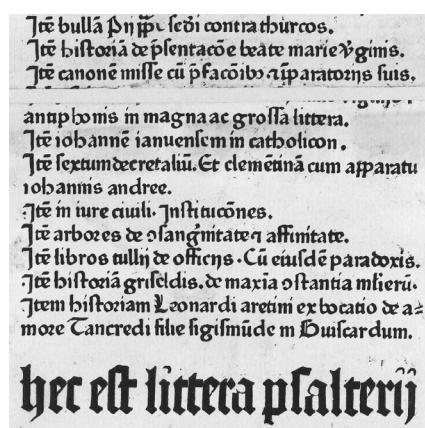 Jtē bullā Pij pp̄e ſcd̄i contra thurcos.
Jtē hiſtoriā de p̄ſentacōe beate marie v̾ginis.
Jtē canonē miſſe cū p̄facōibꝫ ⁊ īp̄paratorijs ſuis.
antiphonis in magna ac groſſa littera.
Jtē iohannē ianuenſem in catholicon.
Jtē ſextum decretaliū. Et clemētinā cum apparatu
iohannis andree.
Jtē in iure ciuili. Inſtitucōnes.
Jtē arbores de ꝯſangͥnitate ⁊ affinitate.
Jtē libros tullij de officijs. Cū eiuſdē paradoxis.
Jtē hiſtoriā griſeldis. de maxīa ꝯſtantia ml̄ierū.
Jtem hiſtoriam Leonardi aretini ex bocatio de a⸗
more Tancredi filie ſigiſmūde in Guiſcardum.
hec eſt littera pſalterij